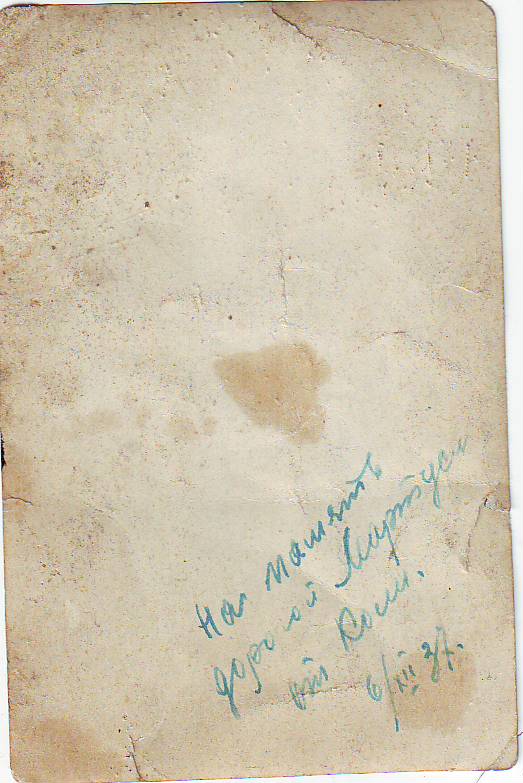 На память
дорогой Мартуси
от Коли.
6/XII 37.